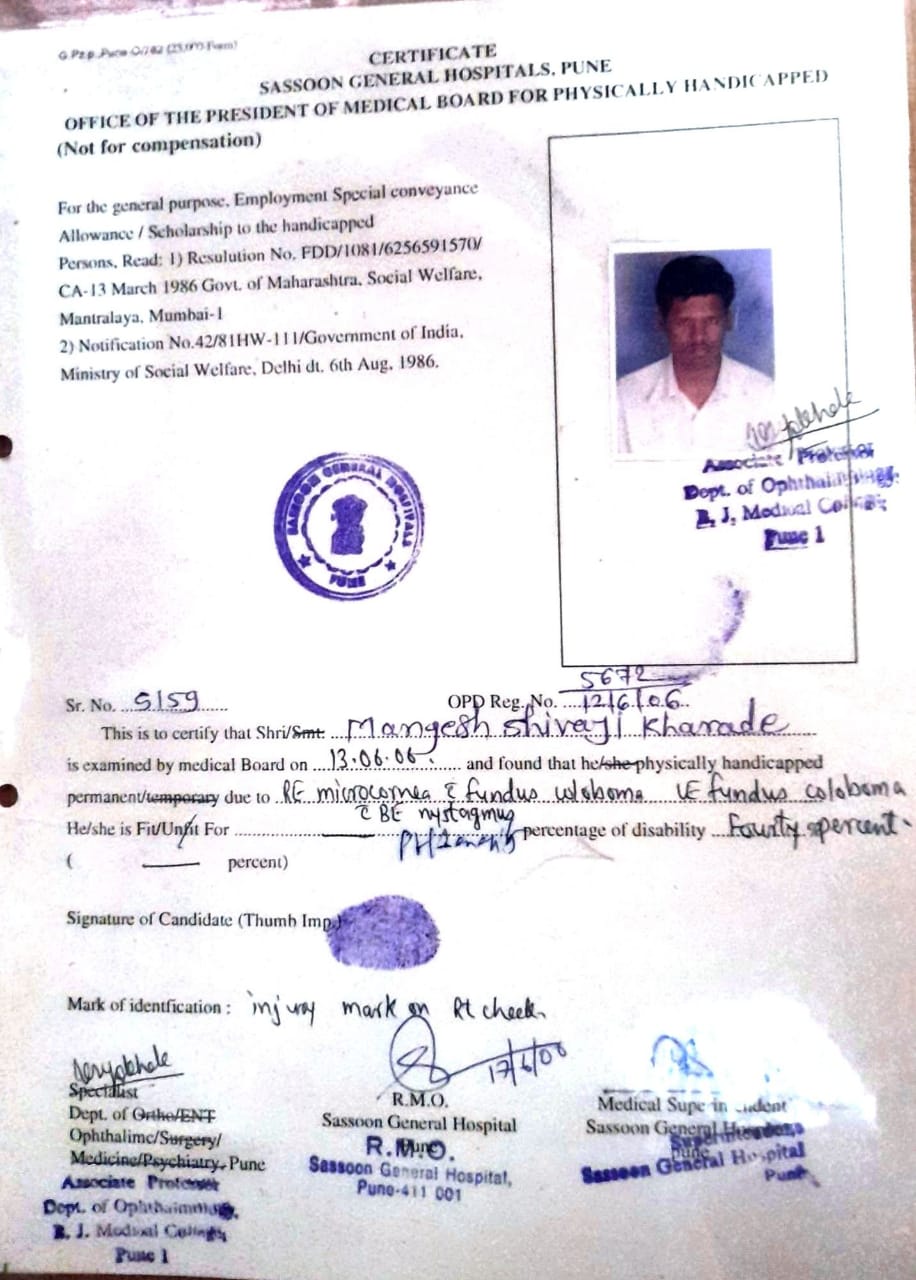 CERTIFICATE
SASSOON GENERAL HOSPITALS, PUNE
OFFICE OF THE PRESIDENT OF MEDICAL BOARD FOR PHYSICALLY HANDICAPPED
(Not for compensation)
For the general purpose, Employment Special conveyance
Allowance / Scholarship to the handicapped
Persons, Read: 1) Resulution No. FDD/1081/6256591570/
CA-13 March 1986 Govt. of Maharashtra, Social Welfare,
Mantralaya, Mumbai-1
2) Notification No.42/81HW-111/Government of India,
Ministry of Social Welfare, Delhi dt. 6th Aug, 1986.
Associate Professor
Dept. of Ophthalmology
B. J. Medical College
Pune 1
SASSOON GENERAL HOSPITALS
PUNE
5672
Sr. No. 5159 OPD Reg. No. 12/6/06
This is to certify that Shri/Smt. Mangesh Shivaji Kharade
is examined by medical Board on 13.06.06 and found that he/she physically handicapped
permanent/temporary due to RE microcornea c fundus coloboma LE fundus coloboma
c BE nystagmus
He/she is Fit/Unfit For percentage of disability Fourty percent.
( percent)
Signature of Candidate (Thumb Imp.)
Mark of identfication : injury mark on Rt cheek
17/6/06
Specialist
Dept. of Ortho/ENT
Ophthalmc/Surgery/
Medicine/Psychiatry, Pune
Associate Professor
Dept. of Ophthalmology,
B. J. Medical College,
Pune 1
R.M.O.
Sassoon General Hospital
Pune
R.M.O.
Sassoon General Hospital,
Pune-411 001
Medical Superintendent
Sassoon General Hospital
Pune
Superintendent
Sassoon General Hospital
Pune